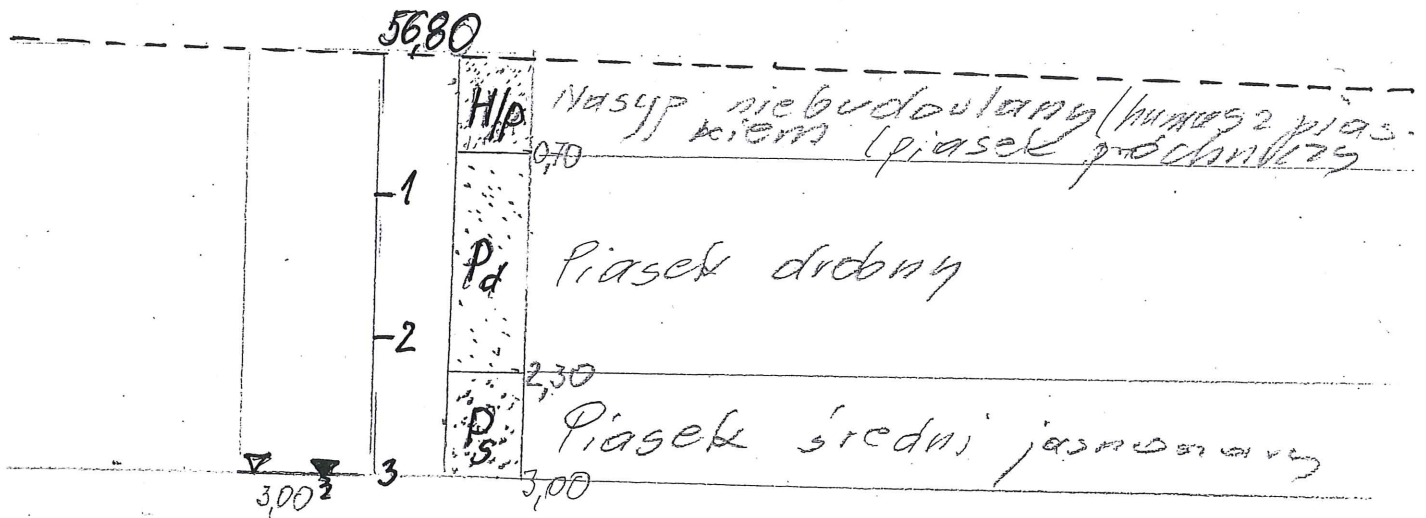 56,80
H/p Nasyp niebudowlany (humus z pias-
kiem (piasek próchniczy
0,70
1
Pd Piasek drobny
2
2,30
Ps Piasek średni jasnoszary
3
3,00
3,00